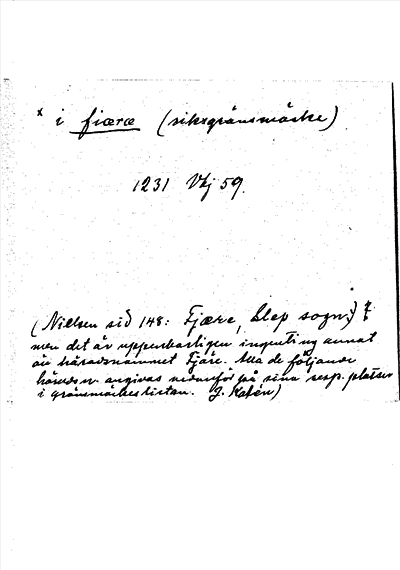 x i fiæræ (riksgränsmärke)
1231 Vhj 59.
(Nielsen sid 148: Fjære, Slep sogn?) ?
men det är uppenbarligen ingenting annat
än häradsnamnet Fjäre. Alla de följande
häradsn. angivas nedanför på sina resp. platser
i gränsmärkeslistan. J. Kalén)